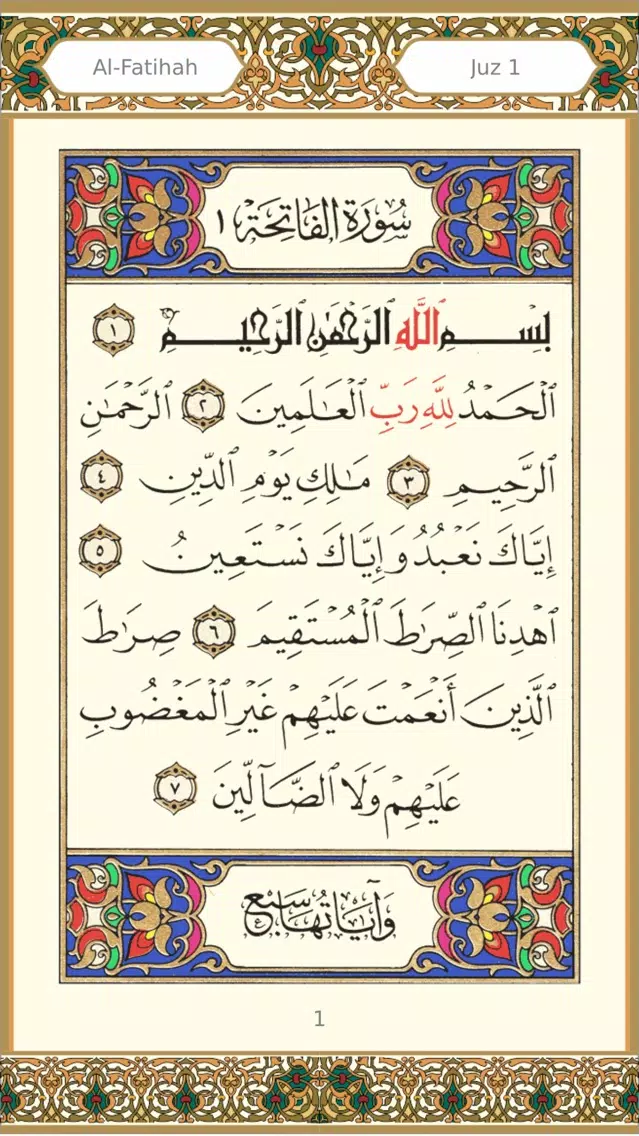 Al-Fatihah
Juz 1
سُورَةُ الفَاتِحَة ١
بِسْمِ ٱللَّهِ ٱلرَّحْمَٰنِ ٱلرَّحِيمِ ١
ٱلْحَمْدُ لِلَّهِ رَبِّ ٱلْعَٰلَمِينَ ٢ ٱلرَّحْمَٰنِ
ٱلرَّحِيمِ ٣ مَٰلِكِ يَوْمِ ٱلدِّينِ ٤
إِيَّاكَ نَعْبُدُ وَإِيَّاكَ نَسْتَعِينُ ٥
ٱهْدِنَا ٱلصِّرَٰطَ ٱلْمُسْتَقِيمَ ٦ صِرَٰطَ
ٱلَّذِينَ أَنْعَمْتَ عَلَيْهِمْ غَيْرِ ٱلْمَغْضُوبِ
عَلَيْهِمْ وَلَا ٱلضَّآلِّينَ ٧
وَآيَاتُهَا سَبْع
1